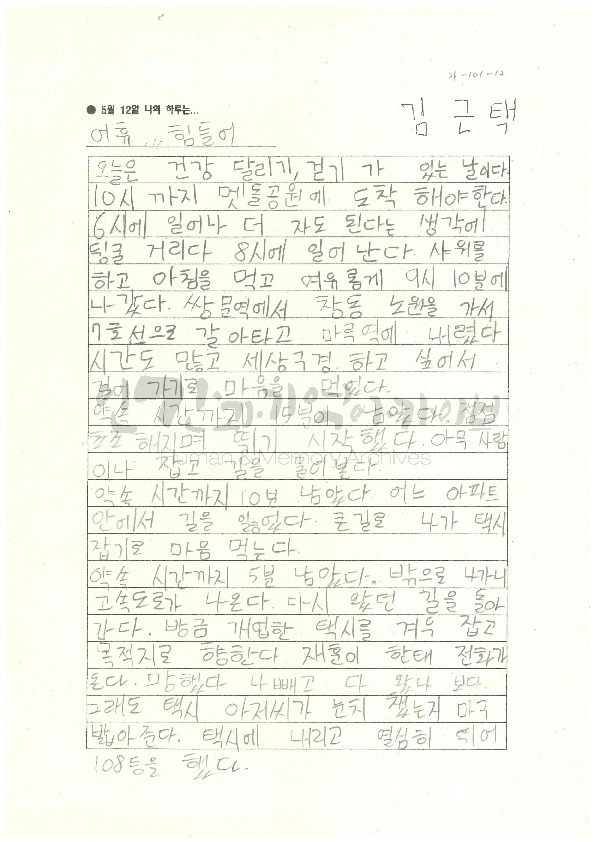 가-101-12
● 5월 12일 나의 하루는...
김근택
어휴,,, 힘들어
오늘은 건강 달리기, 걷기 가 있는 날이다
10시 까지 멧돌공원에 도착 해야한다
6시에 일어나 더 자도 된다는 생각에
팅굴 거리다 8시에 일어 난다. 샤워를
하고 아침을 먹고 여유롭게 9시 10분에
나갔다. 쌍문역에서 창동 노원을 가서
7호선으로 갈아타고 마륵역에 내렸다
시간도 많고 세상구경 하고 싶어서
걸어 가기로 마음을 먹었다.
약속 시간까지 15분이 남았다. 점점
초조해지며 뛰기 시작했다. 아무 사람
이나 잡고 길을 물어본다
약속 시간까지 10분 남았다 어느 아파트
안에서 길을 잃었다. 큰길로 나가 택시
잡기로 마음 먹는다.
약속 시간까지 5분 남았다. 밖으로 나가니
고속도로가 나온다. 다시 왔던 길을 돌아
간다. 방금 개업한 택시를 겨우 잡고
목적지로 향한다 재훈이 한태 전화가
온다. 망했다 나 빼고 다 왔나 보다.
그래도 택시 아저씨가 눈치 챘는지 마구
밟아 준다. 택시에 내리고 열심히 뛰어
108등을 했다.
인간과 기억아카이브
Human & Memory Archives